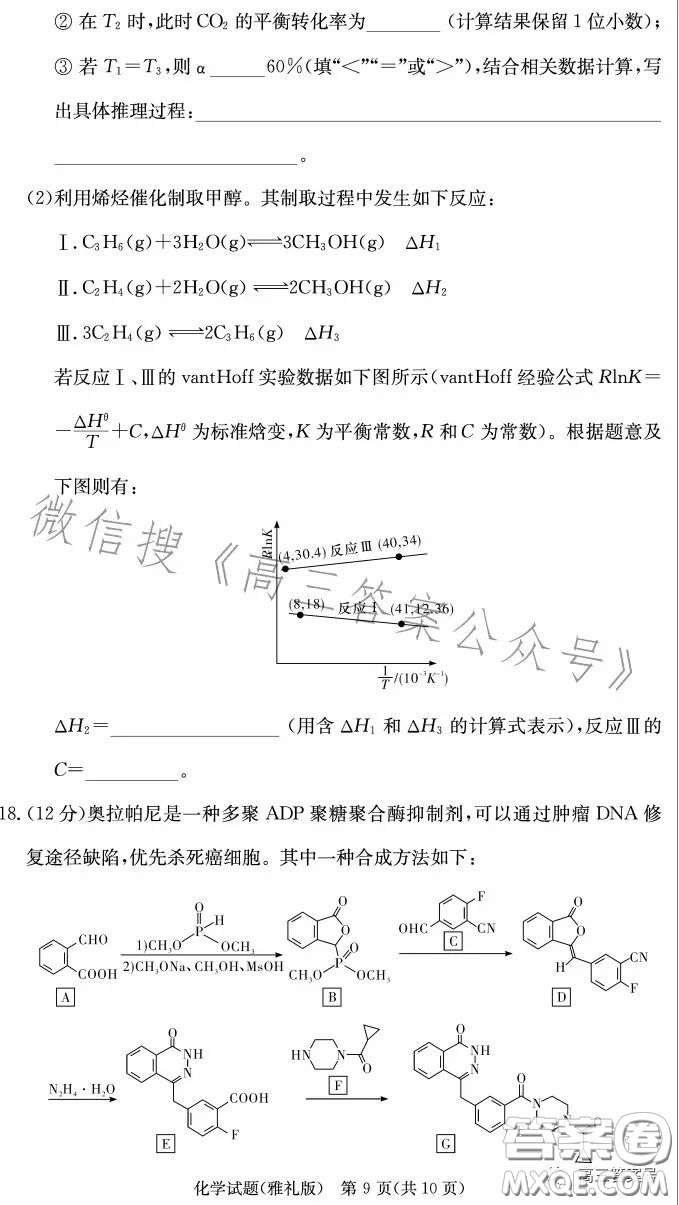 ② 在 T₂ 时,此时 CO₂ 的平衡转化率为________ (计算结果保留 1 位小数);
③ 若 T₁=T₃,则 α ______60%(填“<”“=”或“>”),结合相关数据计算,写
出具体推理过程:________________________
________________________。
(2)利用烯烃催化制取甲醇。其制取过程中发生如下反应:
Ⅰ. C₃H₆(g)+3H₂O(g)⇌3CH₃OH(g) △H₁
Ⅱ. C₂H₄(g)+2H₂O(g)⇌2CH₃OH(g) △H₂
Ⅲ. 3C₂H₄(g)⇌2C₃H₆(g) △H₃
若反应Ⅰ、Ⅲ的 vantHoff 实验数据如下图所示(vantHoff 经验公式 RlnK=
-△Hᶿ/T+C,△Hᶿ 为标准焓变,K 为平衡常数,R 和 C 为常数)。根据题意及
下图则有:
RlnK
(4,30.4) 反应Ⅲ (40,34)
(8,18) 反应Ⅰ (41,12.36)
1/T/(10⁻³K⁻¹)
微信搜《高三答案公众号》
△H₂=________________ (用含 △H₁ 和 △H₃ 的计算式表示),反应Ⅲ的
C=________。
18. (12 分)奥拉帕尼是一种多聚 ADP 聚糖聚合酶抑制剂,可以通过肿瘤 DNA 修
复途径缺陷,优先杀死癌细胞。其中一种合成方法如下:
CHO
COOH
A
O
P
H
1)CH₃O OCH₃
2)CH₃ONa、CH₃OH、MsOH
O
O
P
O
CH₃O OCH₃
B
F
OHC CN
C
O
O
H
CN
F
D
N₂H₄·H₂O
O
NH
N
COOH
F
E
HN N
O
F
O
NH
N
O
N
G
答案圈
MXQE.COM
高三答案号
化学试题(雅礼版) 第 9 页(共 10 页)